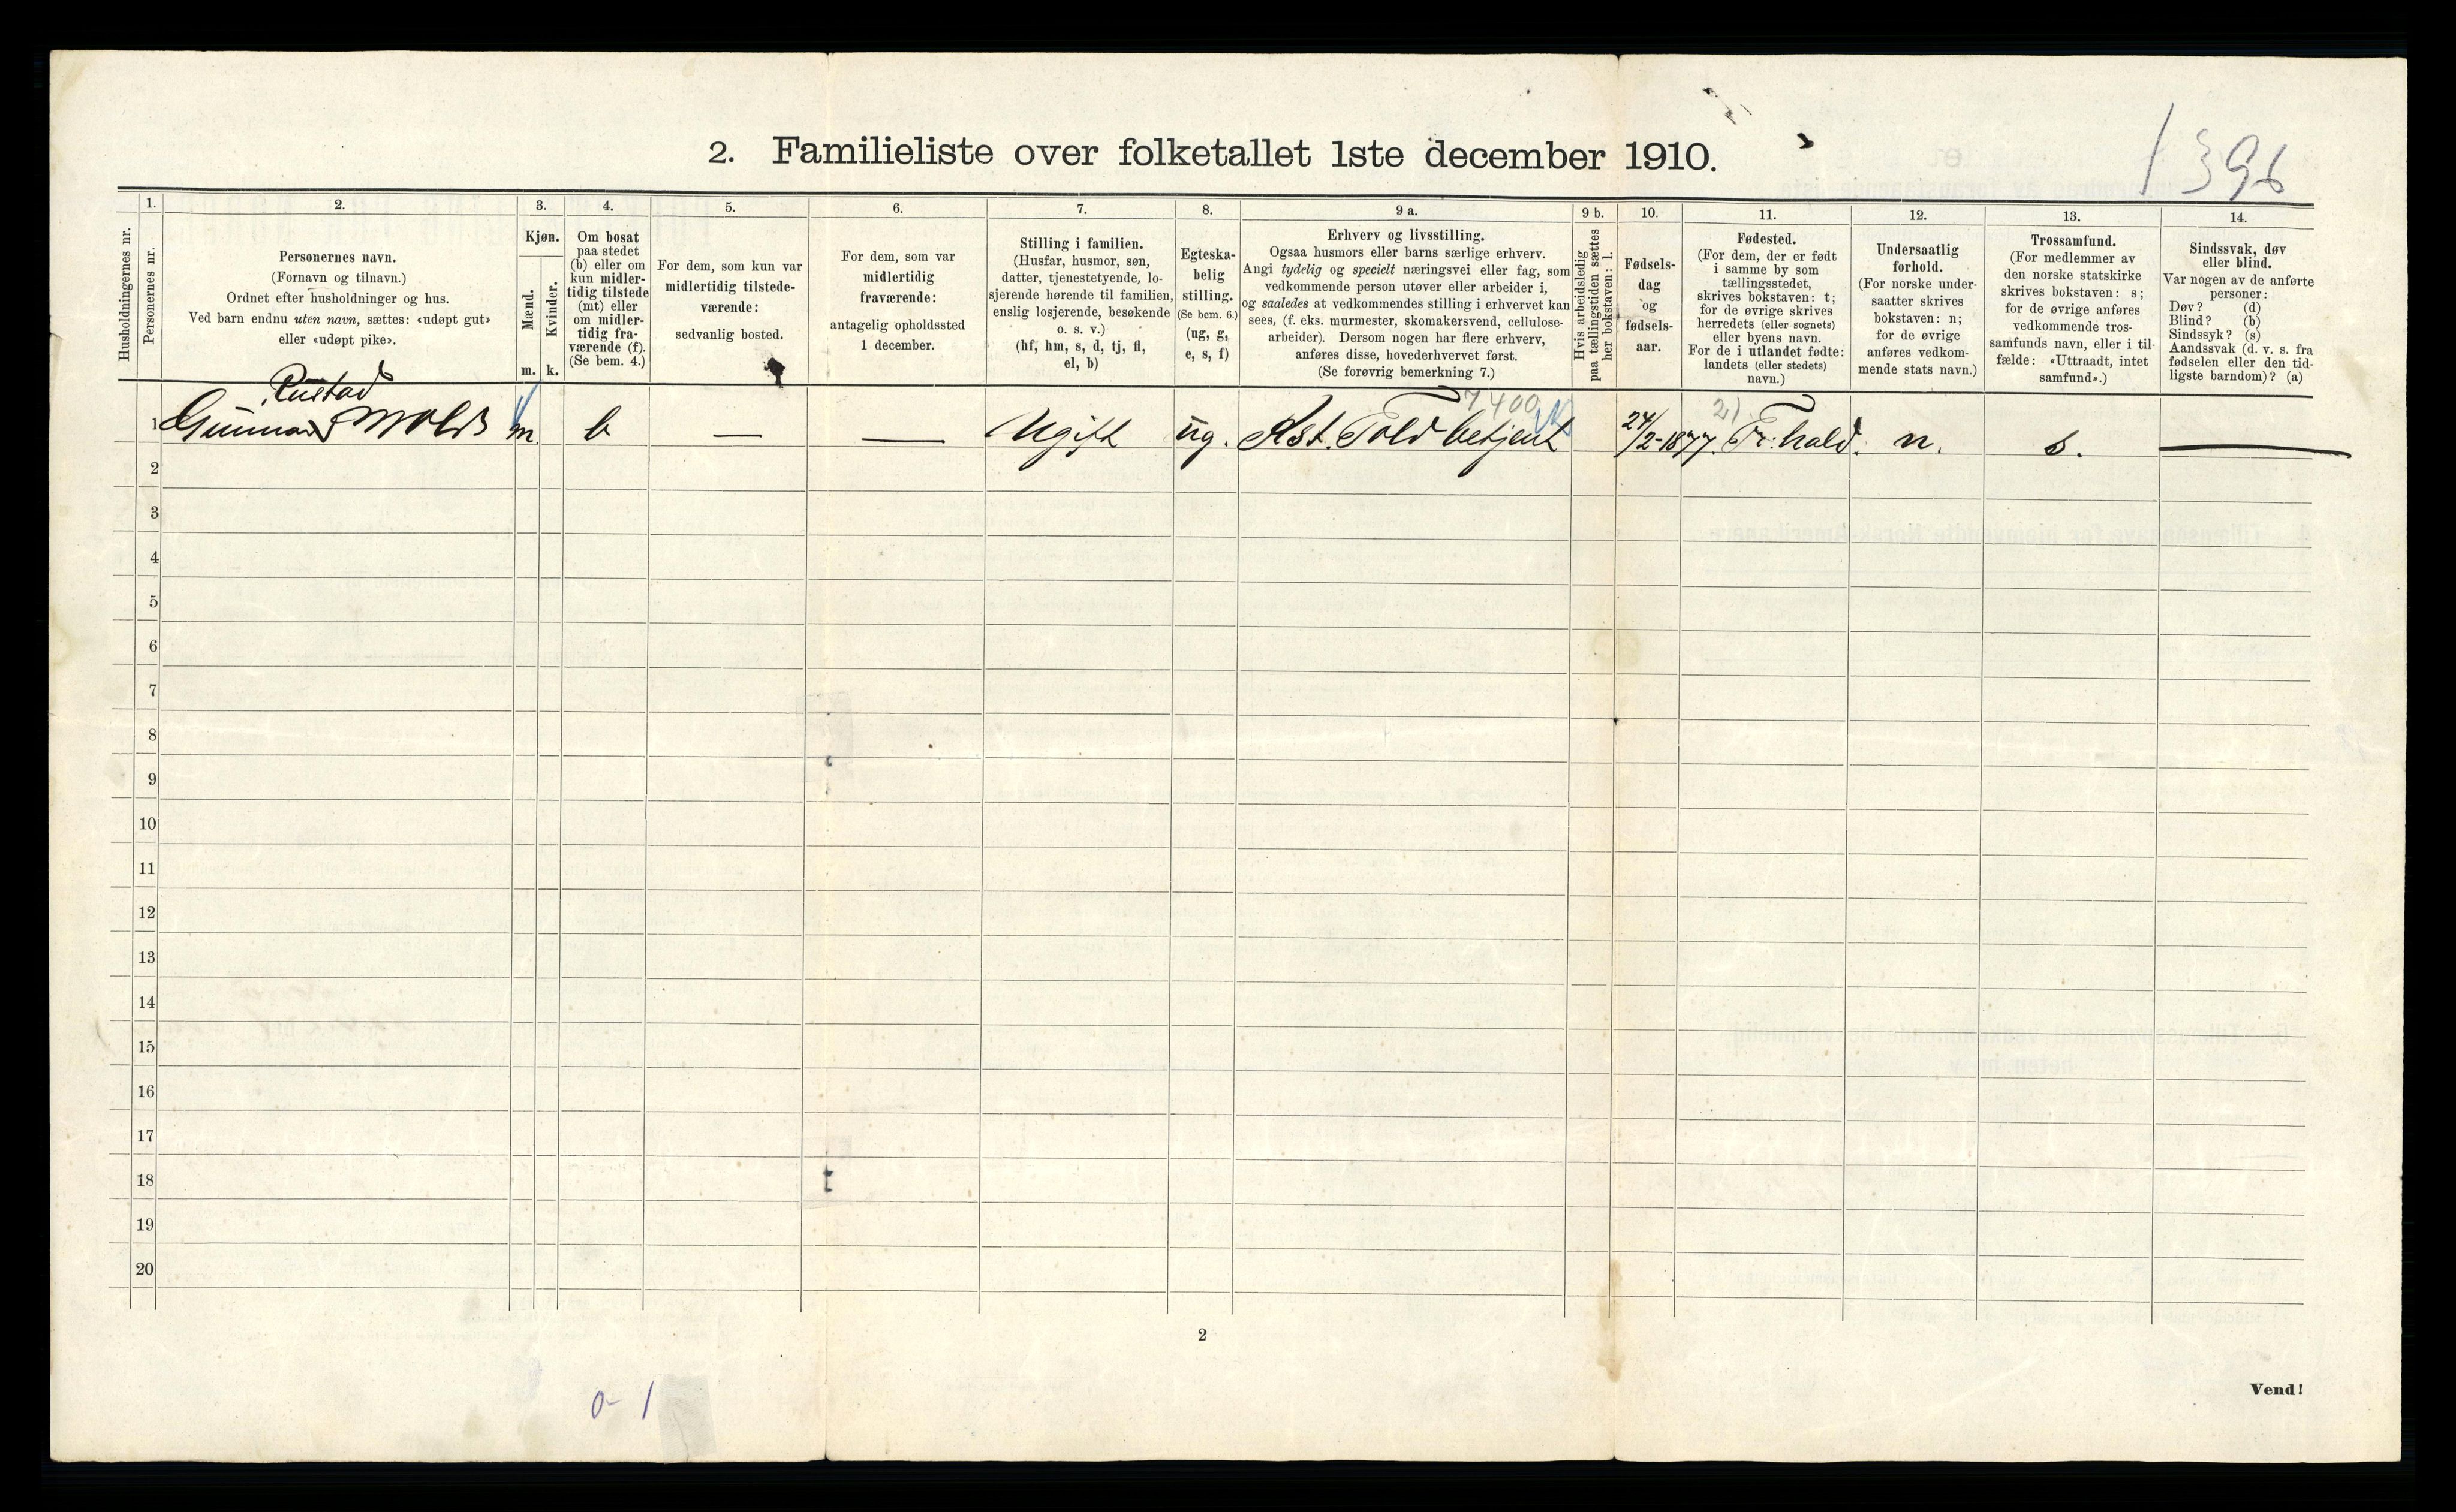 1396
2. Familieliste over folketallet 1ste december 1910.
Husholdningernes nr.
1.
Personernes nr.
2.
Personernes navn.
(Fornavn og tilnavn.)
Ordnet efter husholdninger og hus.
Ved barn endnu uten navn, sættes: «udøpt gut»
eller «udøpt pike».
3.
Kjøn.
Mænd.
Kvinder.
m.
k.
4.
Om bosat
paa stedet
(b) eller om
kun midler-
tidig tilstede
(mt) eller
om midler-
tidig fra-
værende (f).
(Se bem. 4.)
5.
For dem, som kun var
midlertidig tilstede-
værende:
sedvanlig bosted.
6.
For dem, som var
midlertidig
fraværende:
antagelig opholdssted
1 december.
7.
Stilling i familien.
(Husfar, husmor, søn,
datter, tjenestetyende, lo-
sjerende hørende til familien,
enslig losjerende, besøkende
o. s. v.)
(hf, hm, s, d, tj, fl,
el, b)
8.
Egteska-
belig
stilling.
(Se bem. 6.)
(ug, g,
e, s, f)
9 a.
Erhverv og livsstilling.
Ogsaa husmors eller barns særlige erhverv.
Angi tydelig og specielt næringsvei eller fag, som
vedkommende person utøver eller arbeider i,
og saaledes at vedkommendes stilling i erhvervet kan
sees, (f. eks. murmester, skomakersvend, cellulose-
arbeider). Dersom nogen har flere erhverv,
anføres disse, hovederhvervet først.
(Se forøvrig bemerkning 7.)
9 b.
Hvis arbeidsledig
paa tællingstiden sættes
her bokstaven: l.
10.
Fødsels-
dag
og
fødsels-
aar.
11.
Fødested.
(For dem, der er født
i samme by som
tællingsstedet,
skrives bokstaven: t;
for de øvrige skrives
herredets (eller sognets)
eller byens navn.
For de i utlandet fødte:
landets (eller stedets)
navn.)
12.
Undersaatlig
forhold.
(For norske under-
saatter skrives
bokstaven: n;
for de øvrige
anføres vedkom-
mende stats navn.)
13.
Trossamfund.
(For medlemmer av
den norske statskirke
skrives bokstaven: s;
for de øvrige anføres
vedkommende tros-
samfunds navn, eller i til-
fælde: «Uttraadt, intet
samfund».)
14.
Sindssvak, døv
eller blind.
Var nogen av de anførte
personer:
Døv? (d)
Blind? (b)
Sindssyk? (s)
Aandssvak (d. v. s. fra
fødselen eller den tid-
ligste barndom)? (a)
Rustad
7400
1 Gunnar Wold m b — — Ugift ug. Ast. Toldbetjent 24/2-1877. Fr:hald. n. s. —
2
3
4
5
6
7
8
9
10
11
12
13
14
15
16
17
18
19
20
2
Vend!
0-1